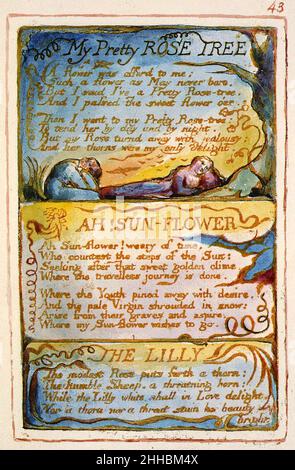 43
My Pretty ROSE TREE
A flower was offerd to me:
Such a flower as May never bore.
But I said I've a Pretty Rose-tree.
And I passed the sweet flower o'er.
Then I went to my Pretty Rose-tree:
To tend her by day and by night.
But my Rose turnd away with jealousy:
And her thorns were my only delight.
AH! SUN-FLOWER
Ah Sun-flower! weary of time,
Who countest the steps of the Sun:
Seeking after that sweet golden clime
Where the travellers journey is done.
Where the Youth pined away with desire,
And the pale Virgin shrouded in snow:
Arise from their graves and aspire,
Where my Sun-flower wishes to go.
THE LILLY
The modest Rose puts forth a thorn:
The humble Sheep, a threatning horn:
While the Lilly white, shall in Love delight,
Nor a thorn nor a threat stain her beauty
bright
alamy
Image ID: 2HHBM4X
www.alamy.com